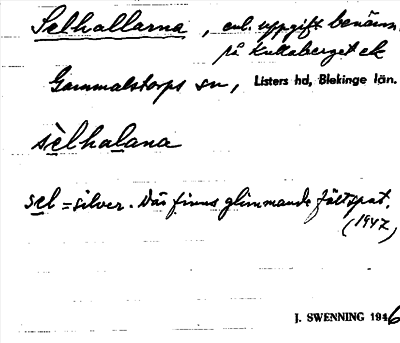 Selhallarna, enl. uppgift benämn.
på Kullaberget ek
Gammalstorps sn, Listers hd, Blekinge län.
sèlhalana
sel = silver. Där finns glimmande fältspat.
(1947)
J. SWENNING 1946